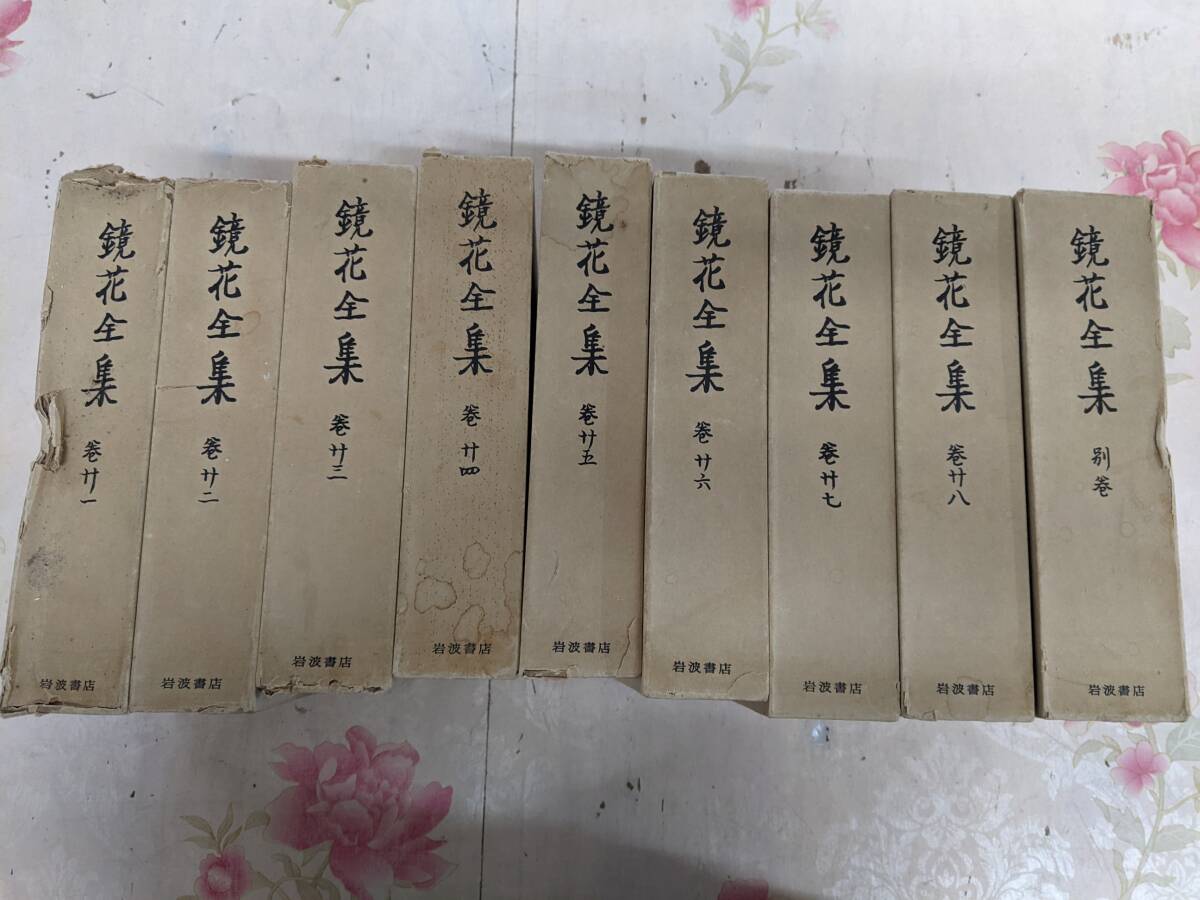 鏡花全集 巻廿一
岩波書店
鏡花全集 巻廿二
岩波書店
鏡花全集 巻廿三
岩波書店
鏡花全集 巻廿四
岩波書店
鏡花全集 巻廿五
岩波書店
鏡花全集 巻廿六
岩波書店
鏡花全集 巻廿七
岩波書店
鏡花全集 巻廿八
岩波書店
鏡花全集 別巻
岩波書店